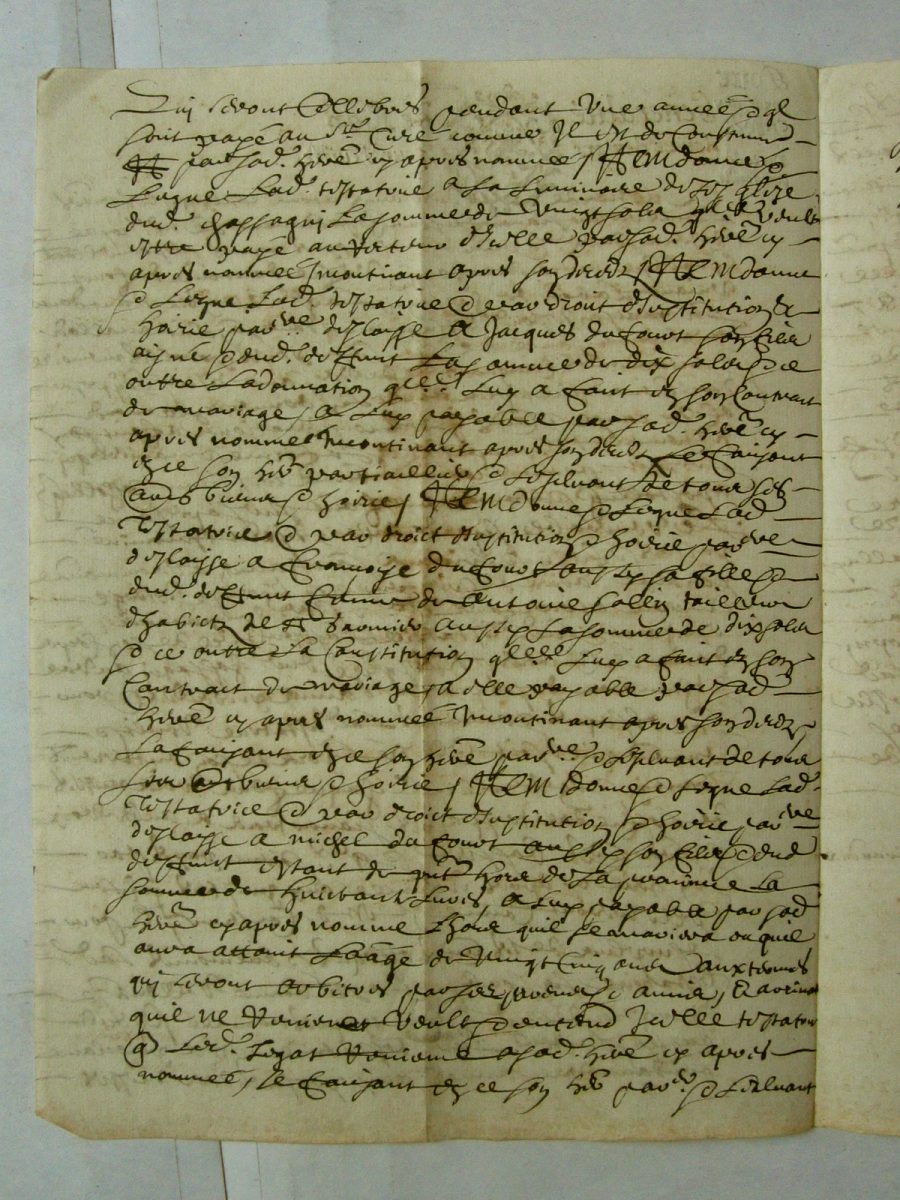 qui seront cellebrés pendant une année et qu
soit payé au Sr Curé comme il est de coustume
par sad. herê cy apres nommee / Item donne et
legue lad. testatrice a la luminaire de lesglize
dud. la somme de vingt solz qlle veult
estre payé au recteur d'icelle par sad. herê cy
apres nommee incontinant apres son deces / Item donne
et legue lad. testatrice et par droit d'institution et
hoirie par.re delaisse a Jacques du son filz
aisné et dud. deffunt la somme de dix solz et ce
outre la donnation qlle luy a faict en son contract
de mariage, a luy payable par sad. herê cy
apres nommee incontinant apres son deces le faisant
en ce son herê particullier et le privant de tous ses
autres biens et hoirie / Item donne et legue lad.
testatrice et par droict d'institution et hoirie par.re
delaisse a Françoise du aussy sa fille et
dud. deffunt femme de Antoine tailleur
d'habictz de aussy la somme de dix solz
et ce outre la constitution qlle luy a faict en son
contract de mariage, a elle payable par sad.
herê cy apres nommee incontinant apres son deces
la faisant en ce son herê par.re et le privant de tous
ses autres biens et hoirie / Item donne et legue lad.
testatrice et par droict d'institution et hoirie par.re
delaisse a Michel du aussy son filz et dud.
deffunt estant de pnt hors de la province la
somme de huictante livres, a luy payable par sad.
herê cy apres nommee lhors quil se mariera ou quil
aura attaint laage de vingt cinq ans aux termes
qui seront arbitres par ses parens et amis, et avenant
quil ne vienne veult et entend icelle testatrice
q led. legat vienne a sad. herê cy apres
nommee, le faisant en ce son herê par.er et le privant